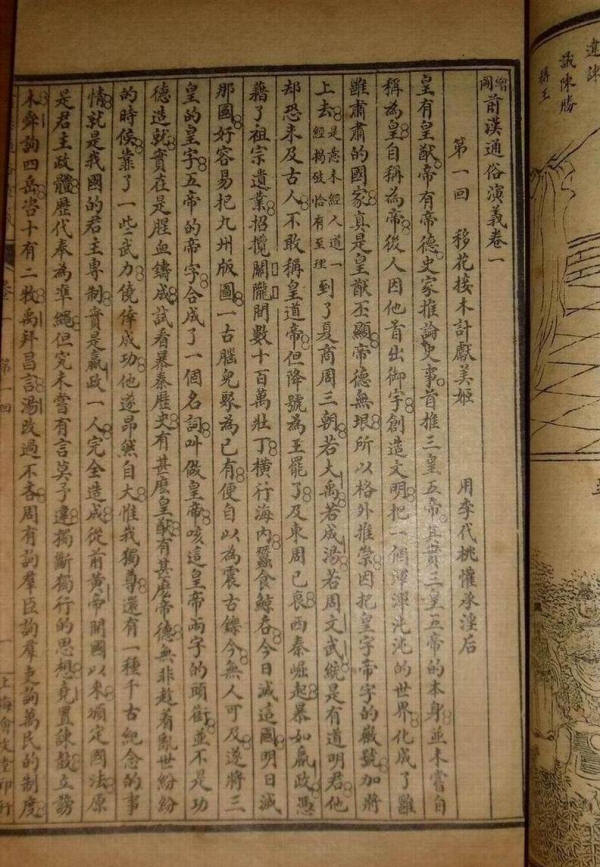 繪圖前漢通俗演義卷一
第一回 移花接木計獻美姬 用李代桃懽承淫后
皇有皇猷帝有帝德史家推論史事首推三皇五帝其實三皇五帝的本身並未嘗自
稱為皇自稱為帝後人因他首出御宇創造文明把一個渾渾沌沌的世界化成了雖
雖肅肅的國家真是皇猷丕顯帝德無垠所以格外推崇因把皇字帝字的徽號加將
上去是意未經人道經揭破恰有至理一到了夏商周三朝若大禹若成湯若周文武統是有道明君他
却恐未及古人不敢稱皇道帝但降號為王罷了及東周已衰西秦崛起暴如嬴政憑
藉了祖宗遺業招攬關隴間數十百萬壯丁橫行海內蠶食鯨吞今日滅這國明日滅
那國好容易把九州版圖一古腦兒聚為己有便自以為震古鑠今無人可及遂將三
皇的皇字五帝的帝字合成了一個名詞叫做皇帝咳這皇帝兩字的頭銜並不是功
德造就實在是腥血鑄成試看暴秦歷史有甚麼皇猷有甚麼帝德無非趁着亂世紛紛
的時候靠了一些武力僥倖成功他遂昂然自大惟我獨尊還有一種千古紀念的事
情就是我國的君主專制實是嬴政一人完全造成從前黃帝開國以來頒定國法原
是君主政體歷代奉為準繩但究未嘗有言莫予違獨斷獨行的思想堯置諫鼓立謗
木舜詢四岳咨十有二牧禹拜昌言湯改過不吝周有詢羣臣詢羣吏詢萬民的制度
卷一 第一回 一 上海會文堂印行
議陳勝
稱王